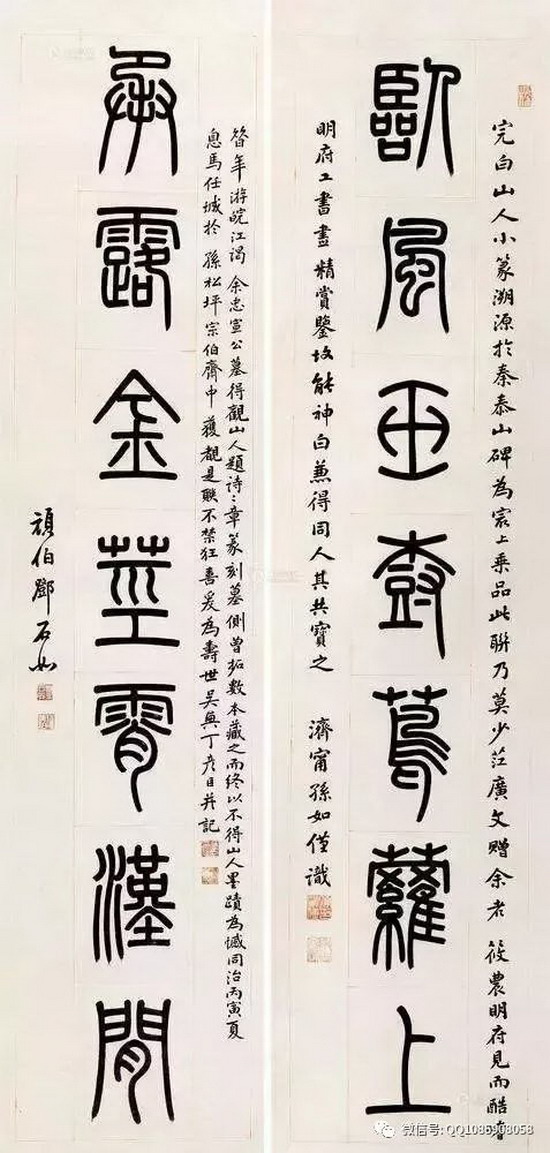 完白山人小篆溯源於秦泰山碑為冣上乘品此聯乃莫少茫廣文贈余者 筱農明府見而酷耆
臨風玉樹蔦蘿上
明府工書畫精賞鑒故能神白兼得同人其共寶之 濟甯孫如僅識
昝年游皖江謁 余忠宣公墓得觀山人題诗二章篆刻墓側曾拓數本藏之而終以不得山人墨蹟為憾同治丙寅夏
息馬任城於 孫松坪宗伯齋中獲覩是聯不禁狂喜爰為壽世 吳興丁彥臣并記
承露金莖霄漢間
頑伯鄧石如
微信号: QQ1086908058